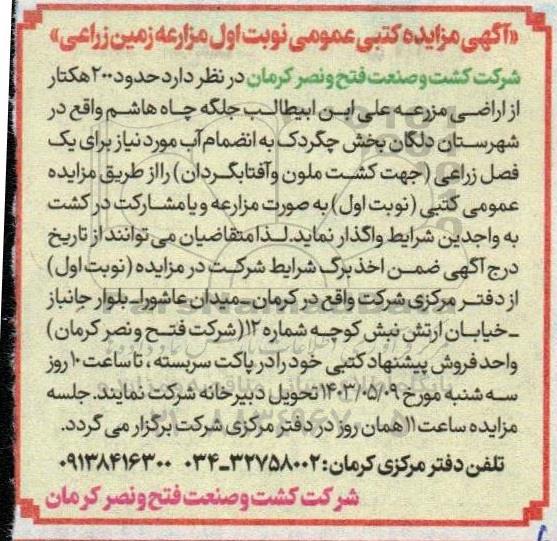 «آگهی مزایده کتبی عمومی نوبت اول مزارعه زمین زراعی»
شرکت کشت و صنعت فتح و نصر کرمان در نظر دارد حدود ۲۰۰ هکتار
از اراضی مزرعه علی ابن ابیطالب جلگه چاه هاشم واقع در
شهرستان دلگان بخش چگردک به انضمام آب مورد نیاز برای یک
فصل زراعی (جهت کشت ملون و آفتابگردان) را از طریق مزایده
عمومی کتبی (نوبت اول) به صورت مزارعه و یا مشارکت در کشت
به واجدین شرایط واگذار نماید. لذا متقاضیان می توانند از تاریخ
درج آگهی ضمن اخذ برگ شرایط شرکت در مزایده (نوبت اول)
از دفتر مرکزی شرکت واقع در کرمان ـ میدان عاشورا ـ بلوار جانباز
ـ خیابان ارتش نبش کوچه شماره ۱۲ (شرکت فتح و نصر کرمان)
واحد فروش پیشنهاد کتبی خود را در پاکت سربسته ، تا ساعت ۱۰ روز
سه شنبه مورخ ۱۴۰۳/۰۵/۰۹ تحویل دبیرخانه شرکت نمایند. جلسه
مزایده ساعت ۱۱ همان روز در دفتر مرکزی شرکت برگزار می گردد.
تلفن دفتر مرکزی کرمان: ۳۲۷۵۸۰۰۲-۰۳۴ ۰۹۱۳۸۴۱۶۳۰۰
شرکت کشت و صنعت فتح و نصر کرمان